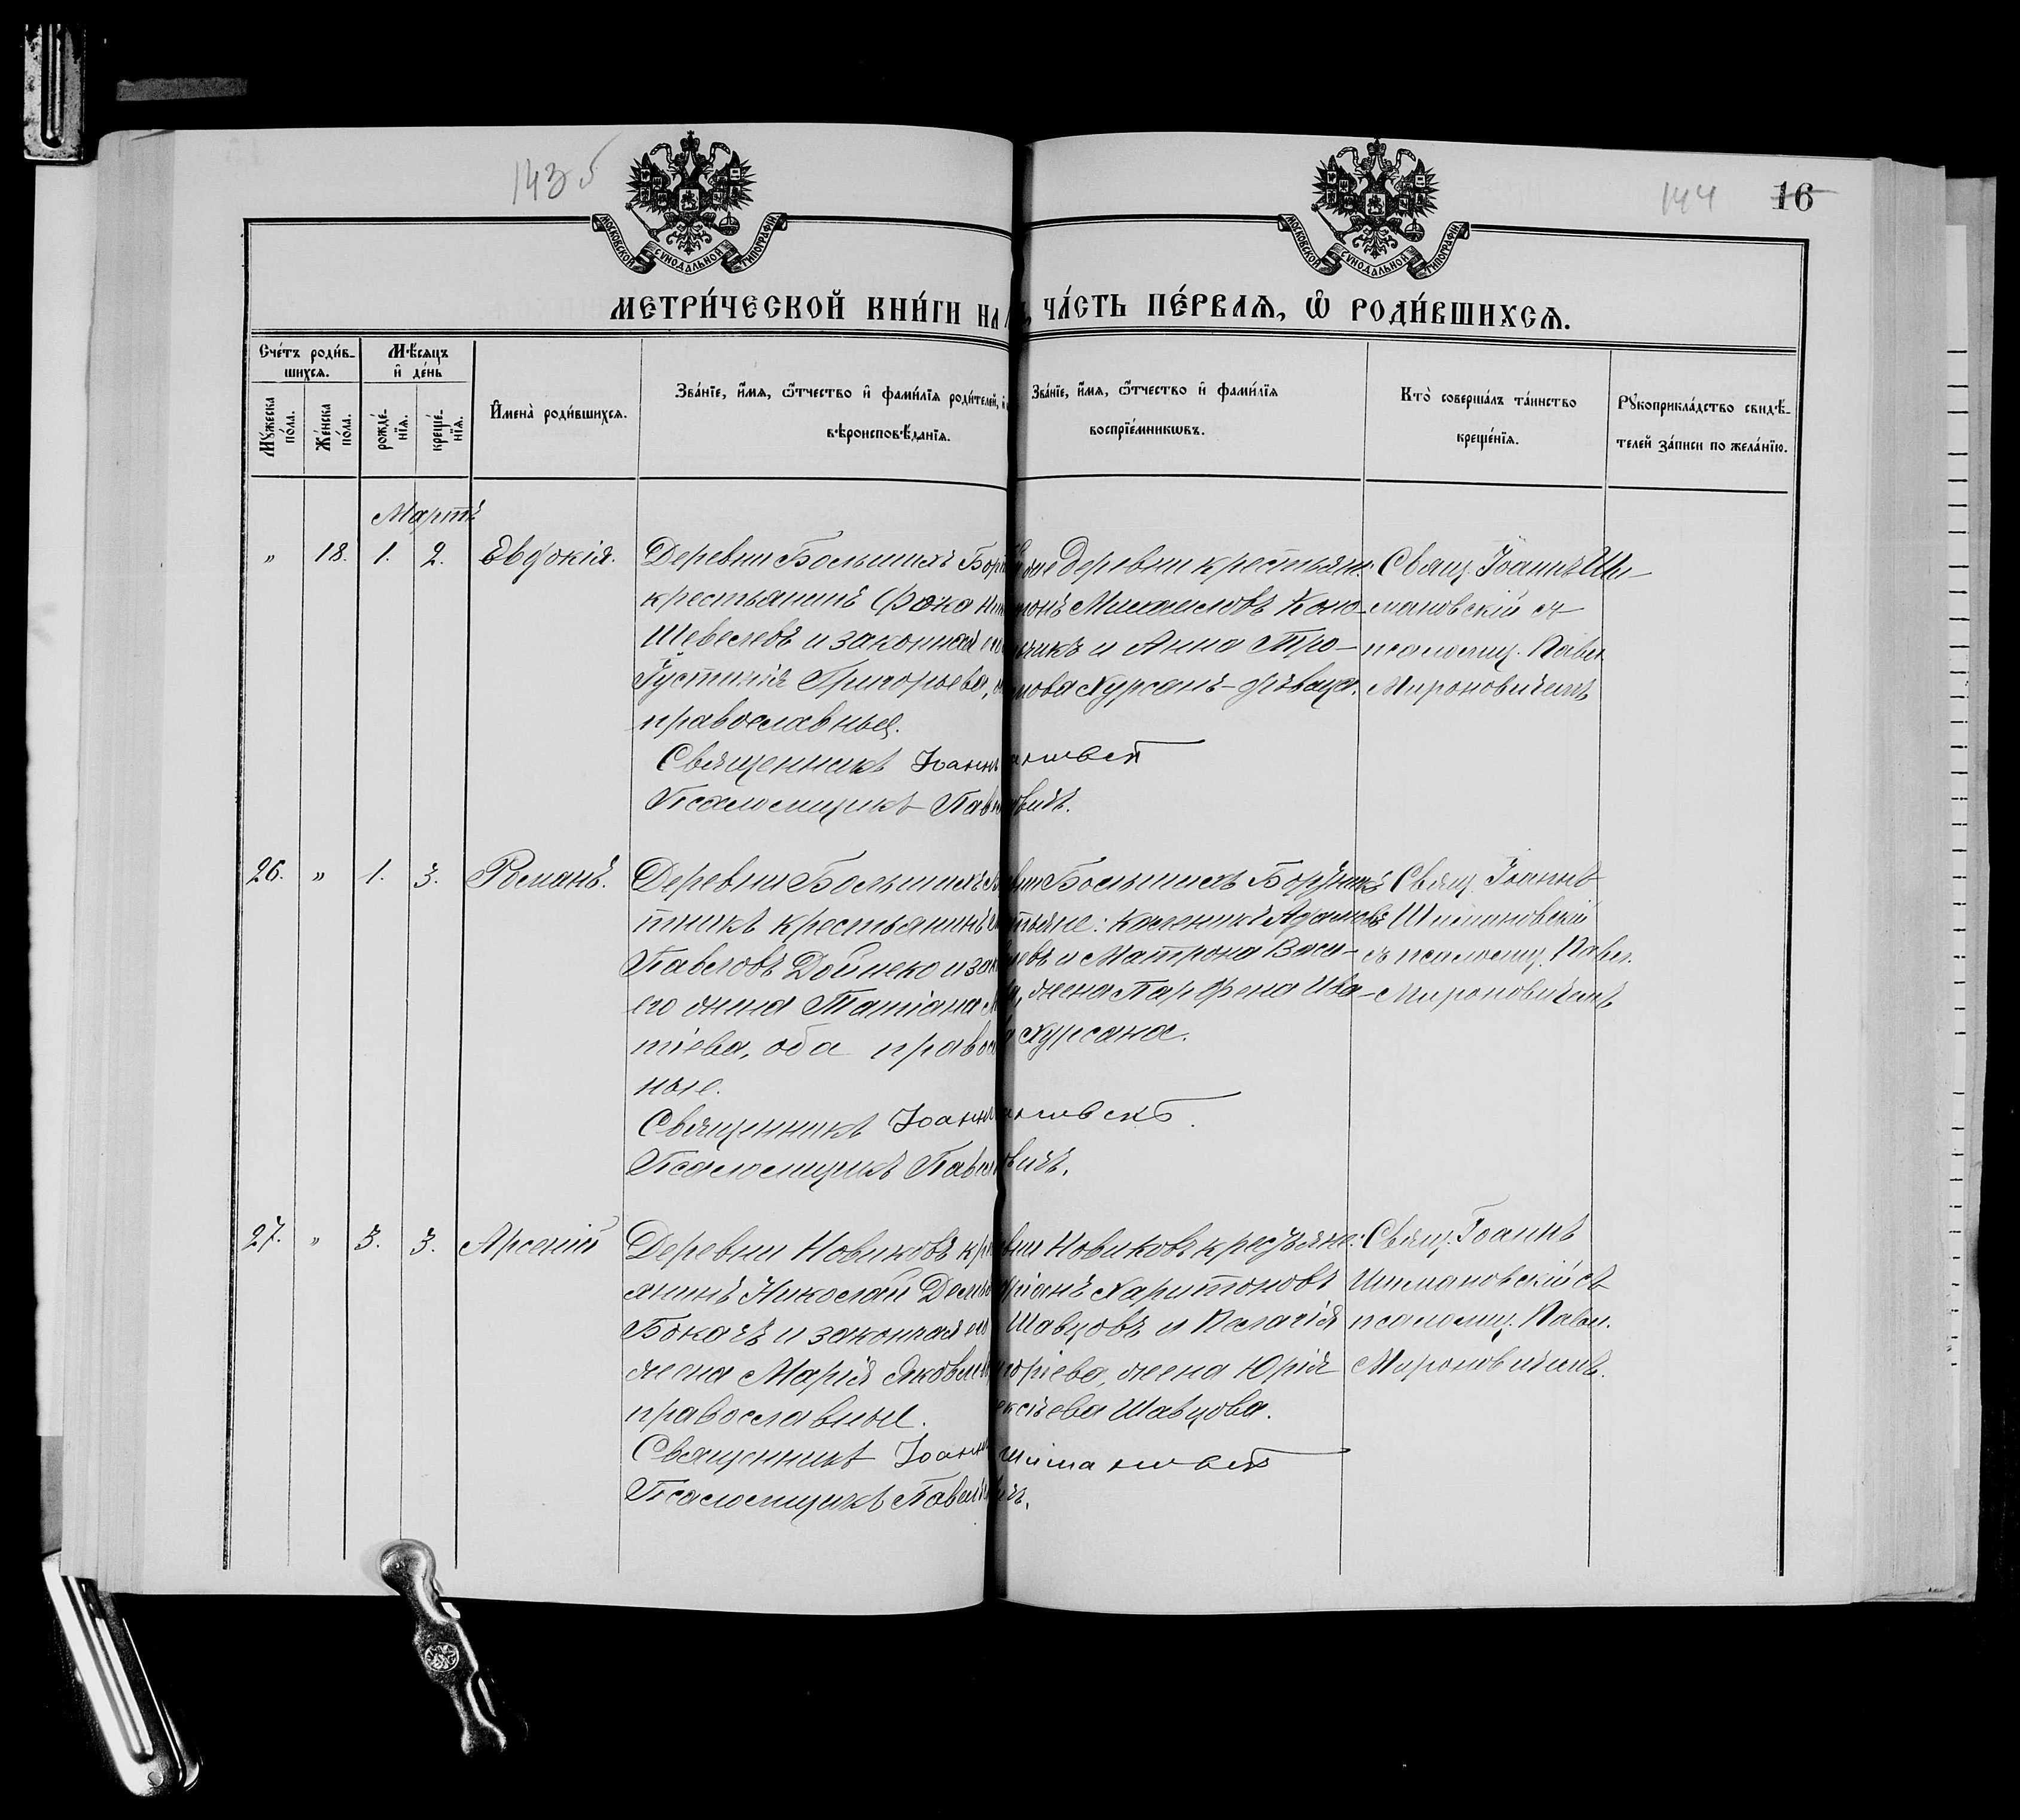 143 б
144
16
МОСКОВСКОЙ СѴНОДАЛЬНОЙ ТИПОГРАФІИ
МОСКОВСКОЙ СѴНОДАЛЬНОЙ ТИПОГРАФІИ
МЕТРИ́ЧЕСКОЙ КНИ́ГИ НА
ЧА́СТЬ ПЕ́РВАѦ, Ѽ РОДИ́ВШИХСѦ.
Сче́тъ роди́в-
шихсѧ.
Мꙋ́жеска по́ла.
Же́нска по́ла.
Мѣ́сѧцъ
и҆ де́нь
рожде́-
нїѧ.
креще́-
нїѧ.
И҆мена̀ роди́вшихсѧ.
Зва́нїе, и҆́мѧ, ѻ҆́тчество и҆ фами́лїѧ роди́телей,
вѣроисповѣ́данїѧ.
Зва́нїе, и҆́мѧ, ѻ҆́тчество и҆ фами́лїѧ
воспрїе́мникѡвъ.
Кто̀ соверша́лъ та́инство
креще́нїѧ.
Рꙋкоприкла́дство свидѣ́-
телей за́писи по жела́нїю.
Мартъ
" 18. 1. 2. Евдокія.
Деревни Большихъ
крестьянинъ Фока
Шевелевъ и законная его
Іустинія Григорьева,
православные.
Священникъ Іоаннъ
Псаломщикъ Пав
деревни крестьяне:
Михаиловъ Коно-
и Анна Тро-
Хурсанъ-дѣвица.
Свящ. Іоаннъ Ши-
мановскій съ
псаломщ. Павл.
Мироновичемъ
26. " 1. 3. Романъ.
Деревни Большихъ
тникъ крестьянинъ
Павловъ Дойнеко и зак
его жена Татіана
тіева, оба правос
ные.
Священникъ Іоаннъ
Псаломщикъ Павел
Большихъ Бортникъ
Адамовъ
и Матрона Васи-
жена Парфена Ива-
Хурсана.
Свящ. Іоаннъ
Шимановскій
съ псаломщ. Павл.
Мироновичемъ
27. " 3. 3. Арсеній
Деревни Новиковъ кре
янинъ Николай Демья
Бокачъ и законная его
жена Марія Яковлев
православные.
Священникъ Іоаннъ
Псаломщикъ Павел
Новиковъ крестьяне:
Харитоновъ
Шавцовъ и Пелагія
жена Юрія
Шавцова.
Свящ. Іоаннъ
Шимановскій съ
псаломщ. Павл.
Мироновичемъ.